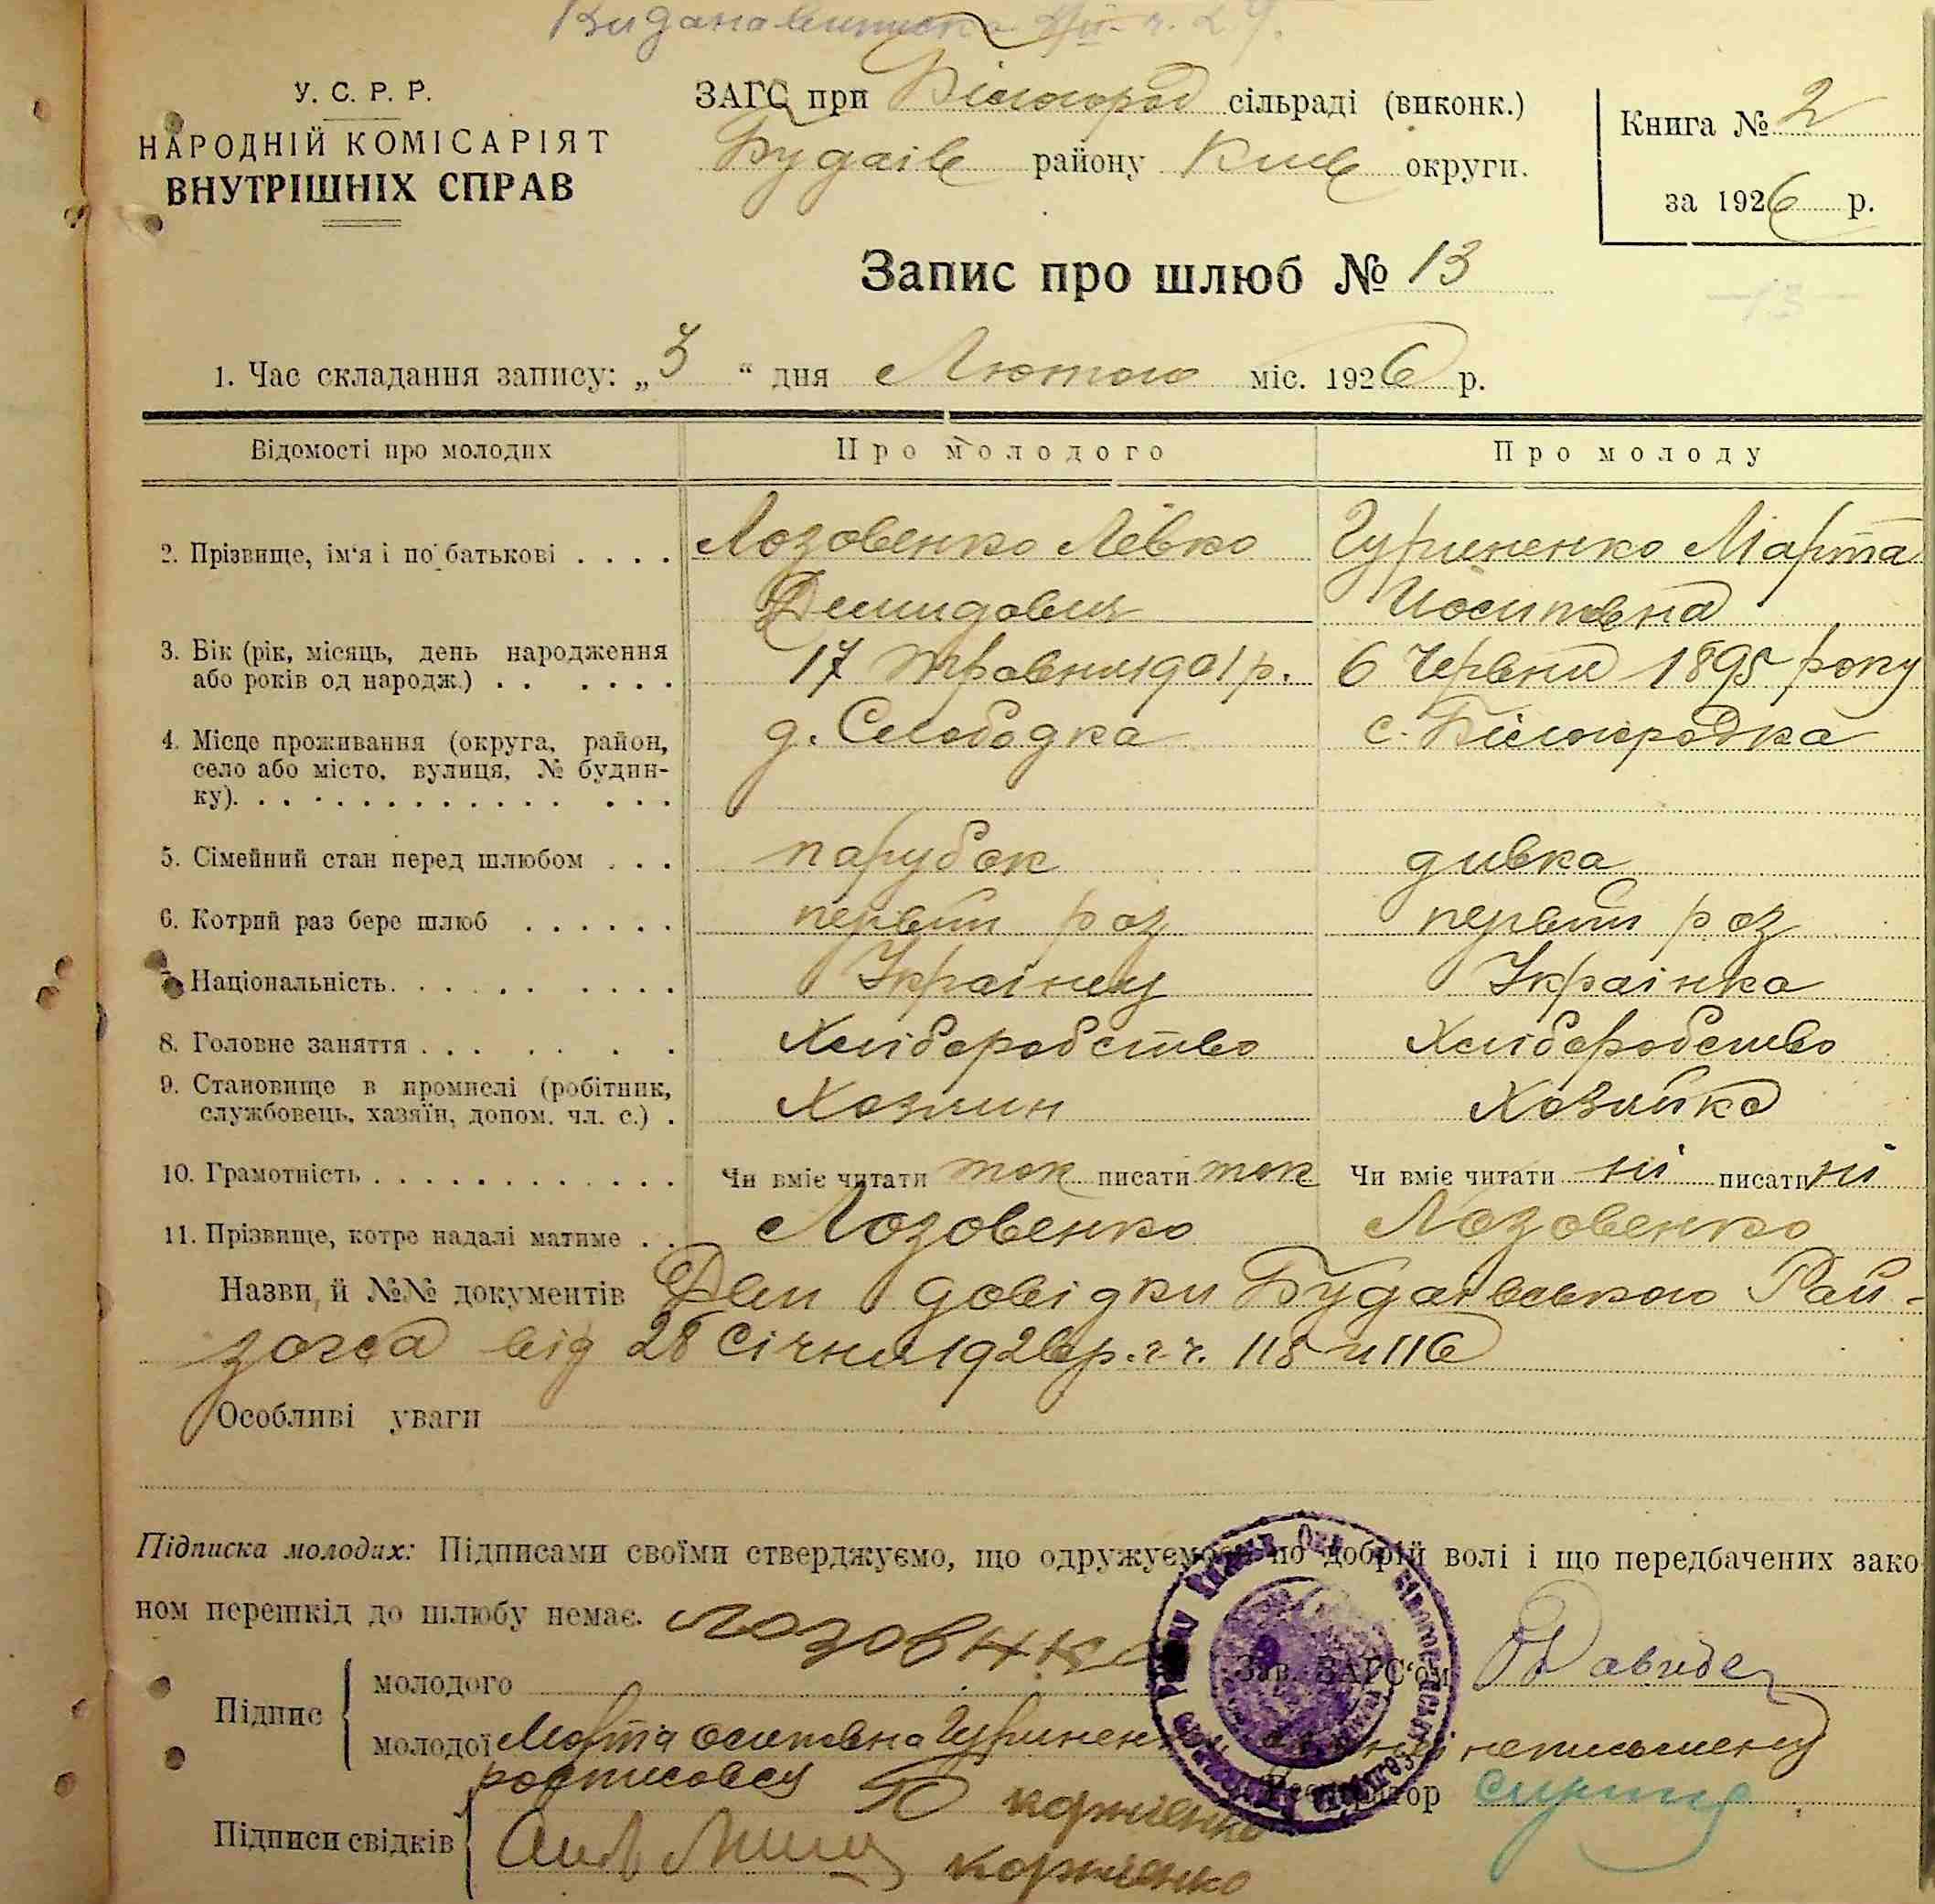 Видана виписка
У. С. Р. Р.
НАРОДНІЙ КОМІСАРІЯТ
ВНУТРІШНІХ СПРАВ
ЗАГС при Білогород сільраді (виконк.)
Будаів району Київ округи.
Книга № 2
за 1926 р.
Запис про шлюб № 13
13
1. Час складання запису: „3“ дня Лютого міс. 1926 р.
Відомості про молодих Про молодого Про молоду
2. Прізвище, ім'я і по батькові . . . . Лозовенко Левко Гуриненко Марта
Демидович Йосиповна
3. Вік (рік, місяць, день народження 17 травня 1901 р. 6 Червня 1895 року
або років од народж.) . . . . . .
4. Місце проживання (округа, район, д. Слободка с. Білогородка
село або місто, вулиця, № будин-
ку). . . . . . . . . . . . . . .
5. Сімейний стан перед шлюбом . . . парубок дивка
6. Котрий раз бере шлюб . . . . . . первий раз первий раз
Національність. . . . . . . . . . Украінец Украінка
8. Головне заняття . . . . . . . Хліборобство Хліборобство
9. Становище в промислі (робітник, Хозяин Хозяйка
службовець, хазяїн, допом. чл. с.) .
10. Грамотність . . . . . . . . . . . . Чи вміє читати так писати так Чи вміє читати ні писати ні
11. Прізвище, котре надалі матиме . . Лозовенко Лозовенко
Назви й №№ документів Дви довідки Будаівського Рай-
загса від 28 Січня 1926 р. з ч. 115 и 116
Особливі уваги
Підписка молодих: Підписами своїми стверджуємо, що одружуємося по добрій волі і що передбачених зако
ном перешкід до шлюбу немає.
Підпис
молодого лозовнко
Зав. ЗАГС'ом
молодої Марта осиповна Гуринен неписьмену
росписовся корнієнко
Реєстратор
Підписи свідків корнієнко